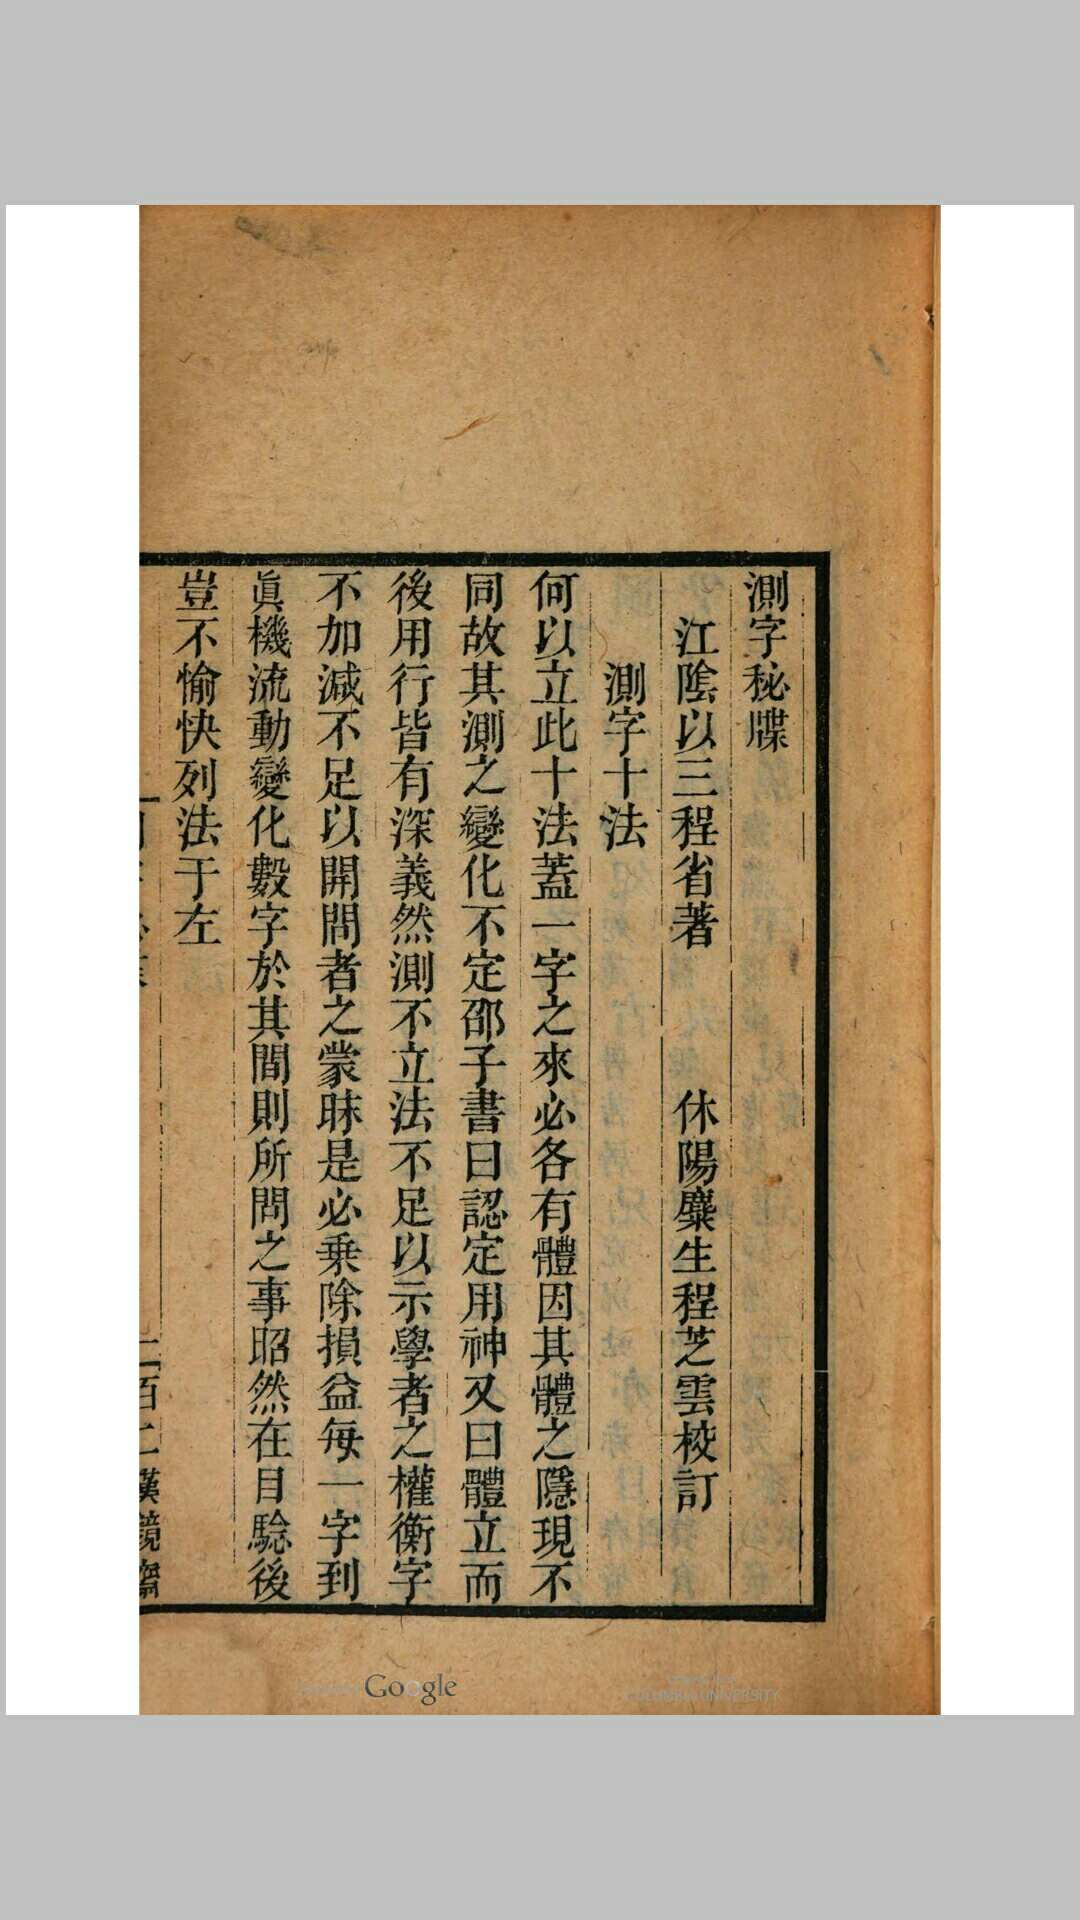 測字秘牒
江陰以三程省著　休陽麋生程芝雲校訂
測字十法
何以立此十法蓋一字之來必各有體因其體之隱現不
同故其測之變化不定邵子書曰認定用神又曰體立而
後用行皆有深義然測不立法不足以示學者之權衡字
不加減不足以開問者之蒙昧是必乗除損益每一字到
眞機流動變化數字於其間則所問之事昭然在目騐後
豈不愉快列法于左
百二漢鏡齋
Google
COLUMBIA UNIVERSITY